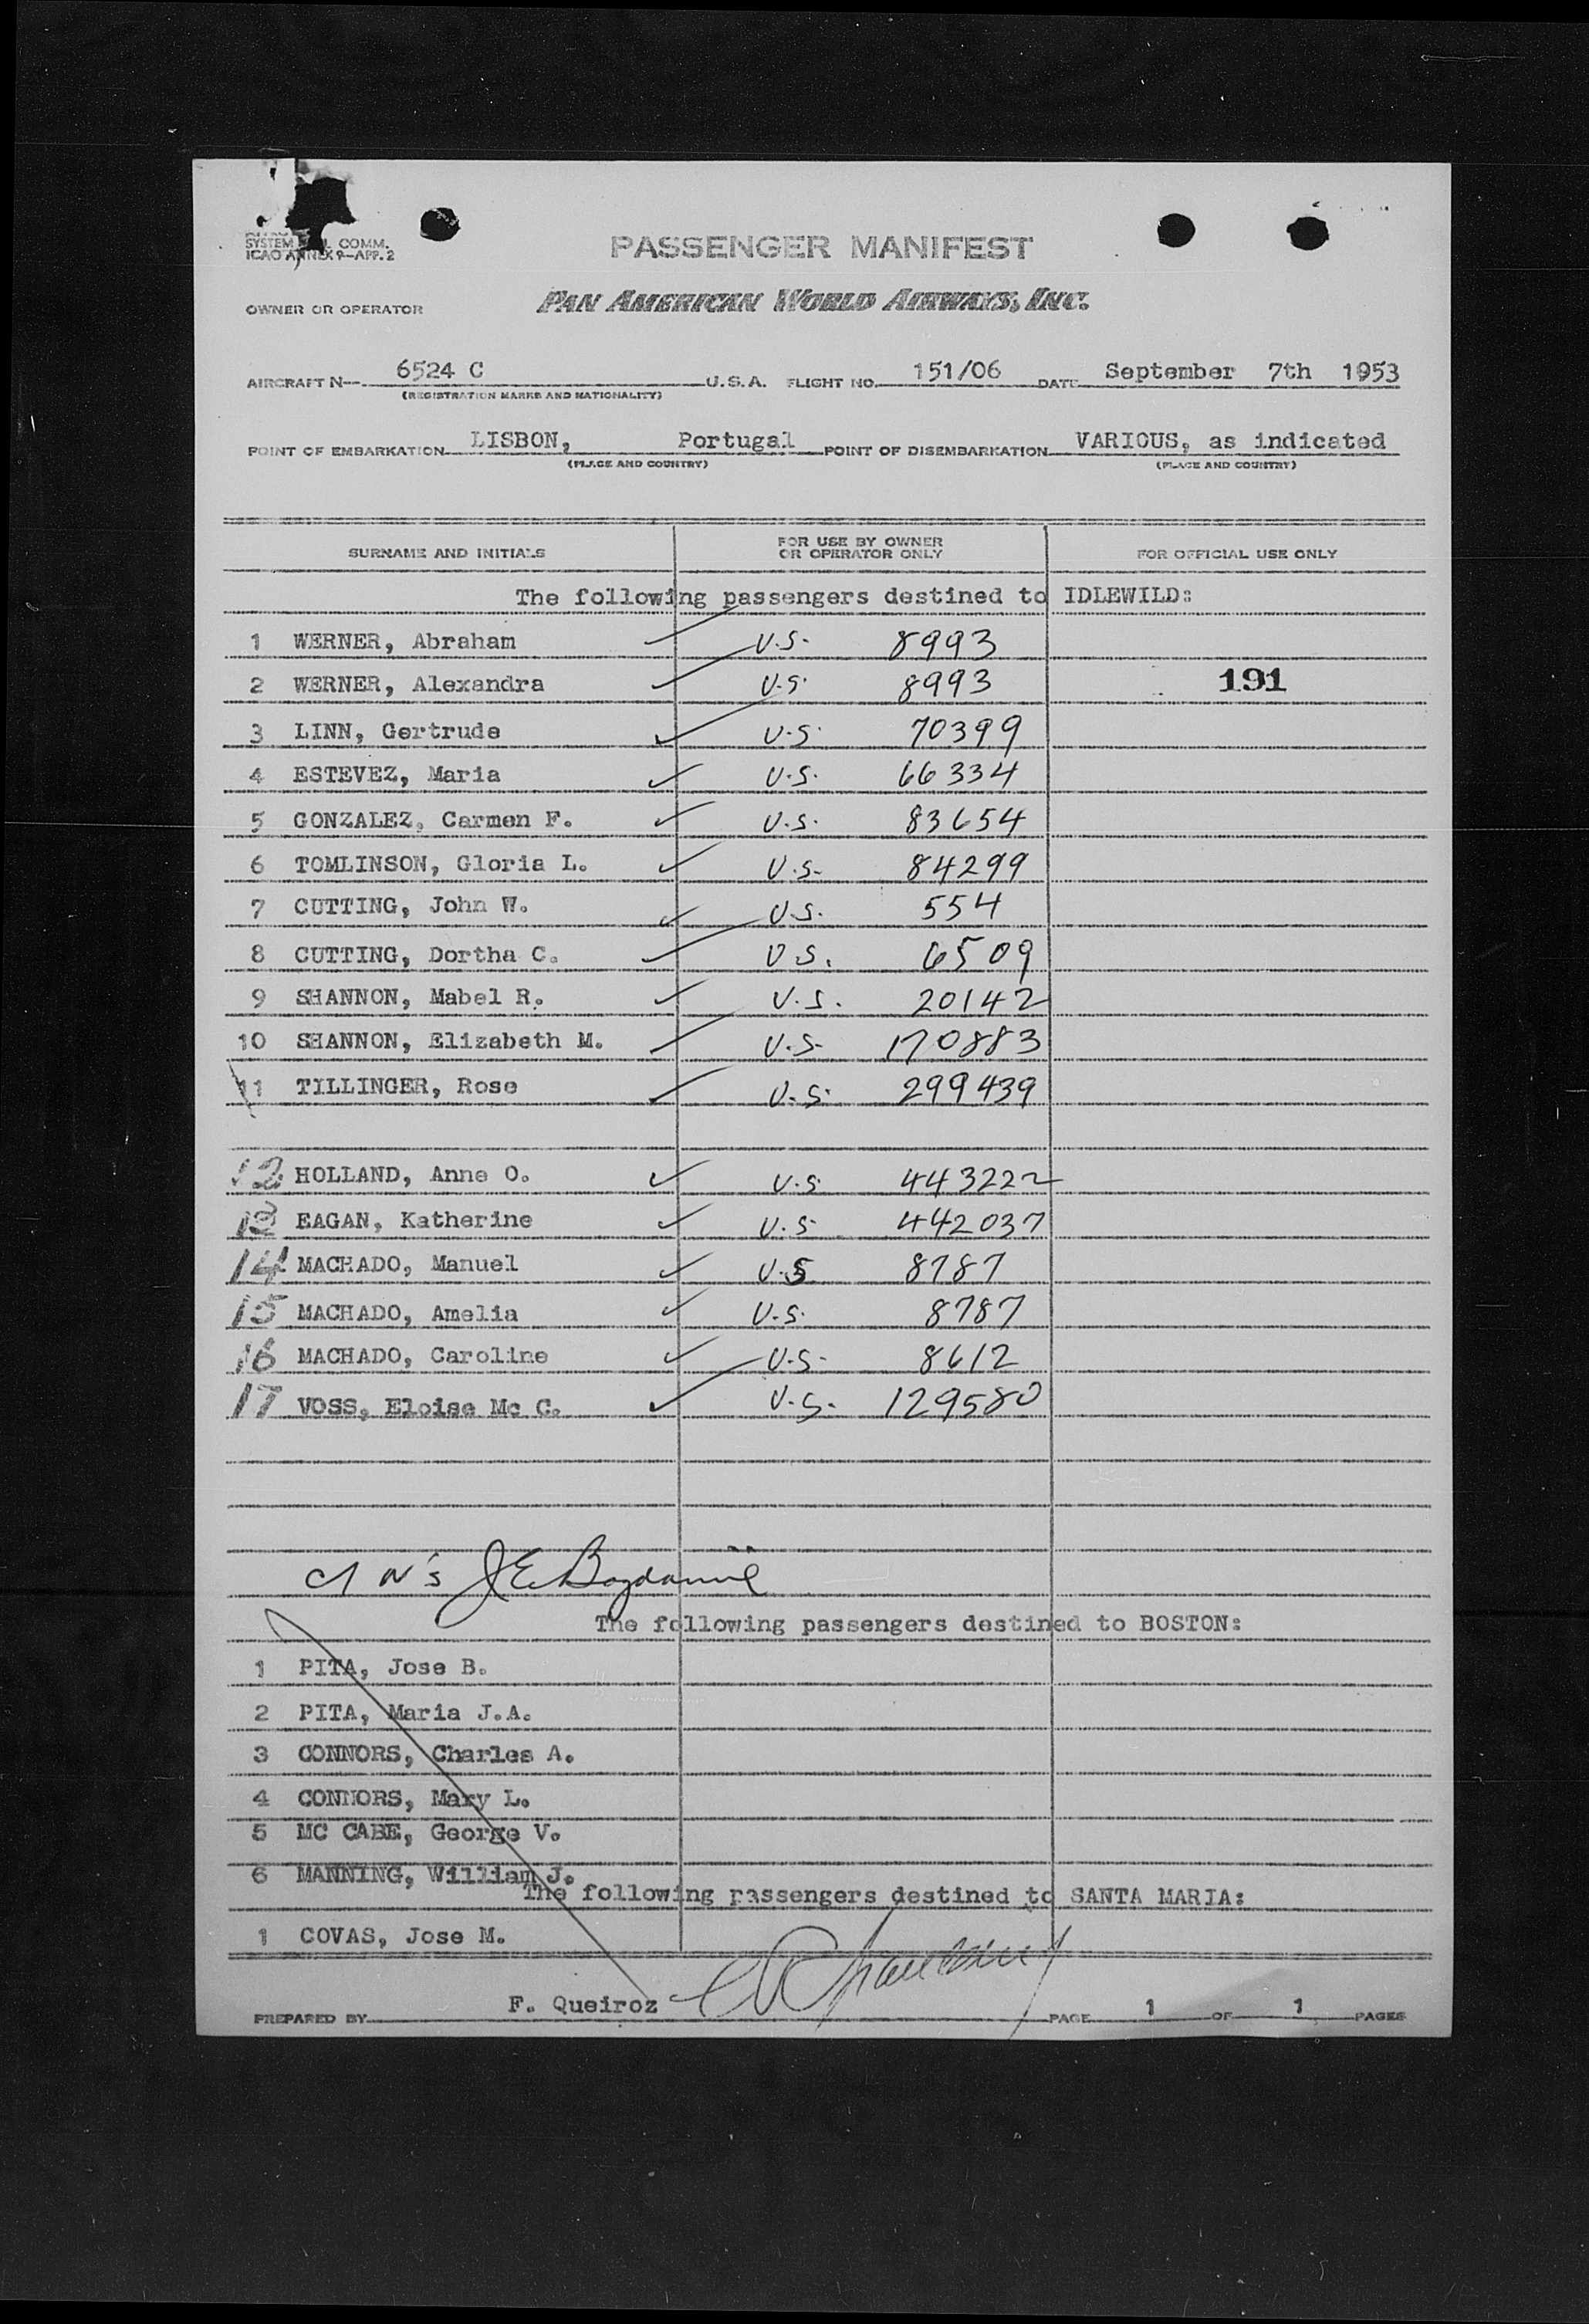 SYSTEM COMM.
ICAO ANNEX 9—APP. 2
PASSENGER MANIFEST
OWNER OR OPERATOR PAN AMERICAN WORLD AIRWAYS, INC.
AIRCRAFT N— 6524 C U.S.A. FLIGHT NO. 151/06 DATE September 7th 1953
(REGISTRATION MARKS AND NATIONALITY)
POINT OF EMBARKATION LISBON, Portugal POINT OF DISEMBARKATION VARIOUS, as indicated
(PLACE AND COUNTRY) (PLACE AND COUNTRY)
SURNAME AND INITIALS FOR USE BY OWNER OR OPERATOR ONLY FOR OFFICIAL USE ONLY
The following passengers destined to IDLEWILD:
1 WERNER, Abraham U.S. 8993
2 WERNER, Alexandra U.S. 8993 191
3 LINN, Gertrude U.S. 70399
4 ESTEVEZ, Maria U.S. 66334
5 GONZALEZ, Carmen F. U.S. 83654
6 TOMLINSON, Gloria L. U.S. 84299
7 CUTTING, John W. U.S. 554
8 CUTTING, Dortha C. U.S. 6509
9 SHANNON, Mabel R. U.S. 20142
10 SHANNON, Elizabeth M. U.S. 170883
11 TILLINGER, Rose U.S. 299439
12 HOLLAND, Anne O. U.S. 443222
13 EAGAN, Katherine U.S. 442037
14 MACHADO, Manuel U.S 8787
15 MACHADO, Amelia U.S. 8787
16 MACHADO, Caroline U.S. 8612
17 VOSS, Eloise Mc C. U.S. 129580
The following passengers destined to BOSTON:
1 PITA, Jose B.
2 PITA, Maria J.A.
3 CONNORS, Charles A.
4 CONNORS, Mary L.
5 MC CABE, George V.
6 MANNING, William J.
The following passengers destined to SANTA MARIA:
1 COVAS, Jose M.
PREPARED BY F. Queiroz PAGE 1 OF 1 PAGES